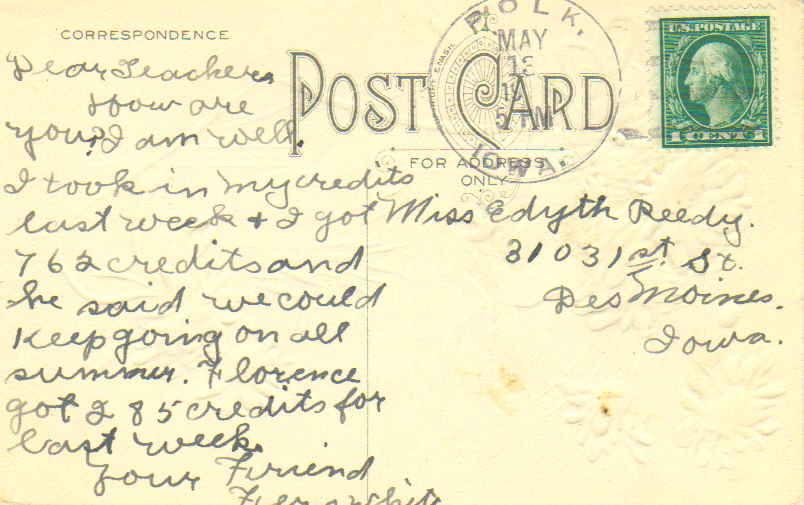 CORRESPONDENCE
POST CARD
FOR ADDRESS
ONLY
POLK,
MAY
13
5 PM
IOWA.
U.S. POSTAGE
1 CENT 1
Dear Teacher,
How are
you? I am well.
I took in my credits
last week & I got
762 credits and
he said we could
keep going on all
summer. Florence
got 285 credits for
last week.
Your Friend
Miss Edyth Reedy.
3103 1st. St.
Des Moines.
Iowa.